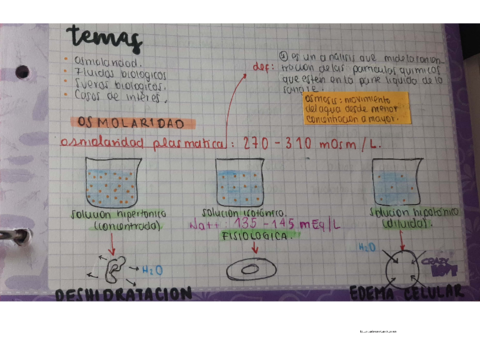 temas
• Osmolaridad.
• Fluidos biológicos
• Sueros biológicos.
• Casos de interes.
def:
es un análisis que mide la concen-
tración de las particulas químicas
que esten en la parte liquido de la
sangre.
osmosis: movimiento
del agua desde menor
concentración a mayor.
OSMOLARIDAD
osmolaridad plasmatica: 270 - 310 mOsm/L.
solución hipertónica
(concentrada)
solución isotónica.
Na++ 135 - 145 mEq/L
FISIOLOGICA.
solución hipotónica
(diluida).
H2O
H2O
DESHIDRATACION
EDEMA CELULAR
CRAZY